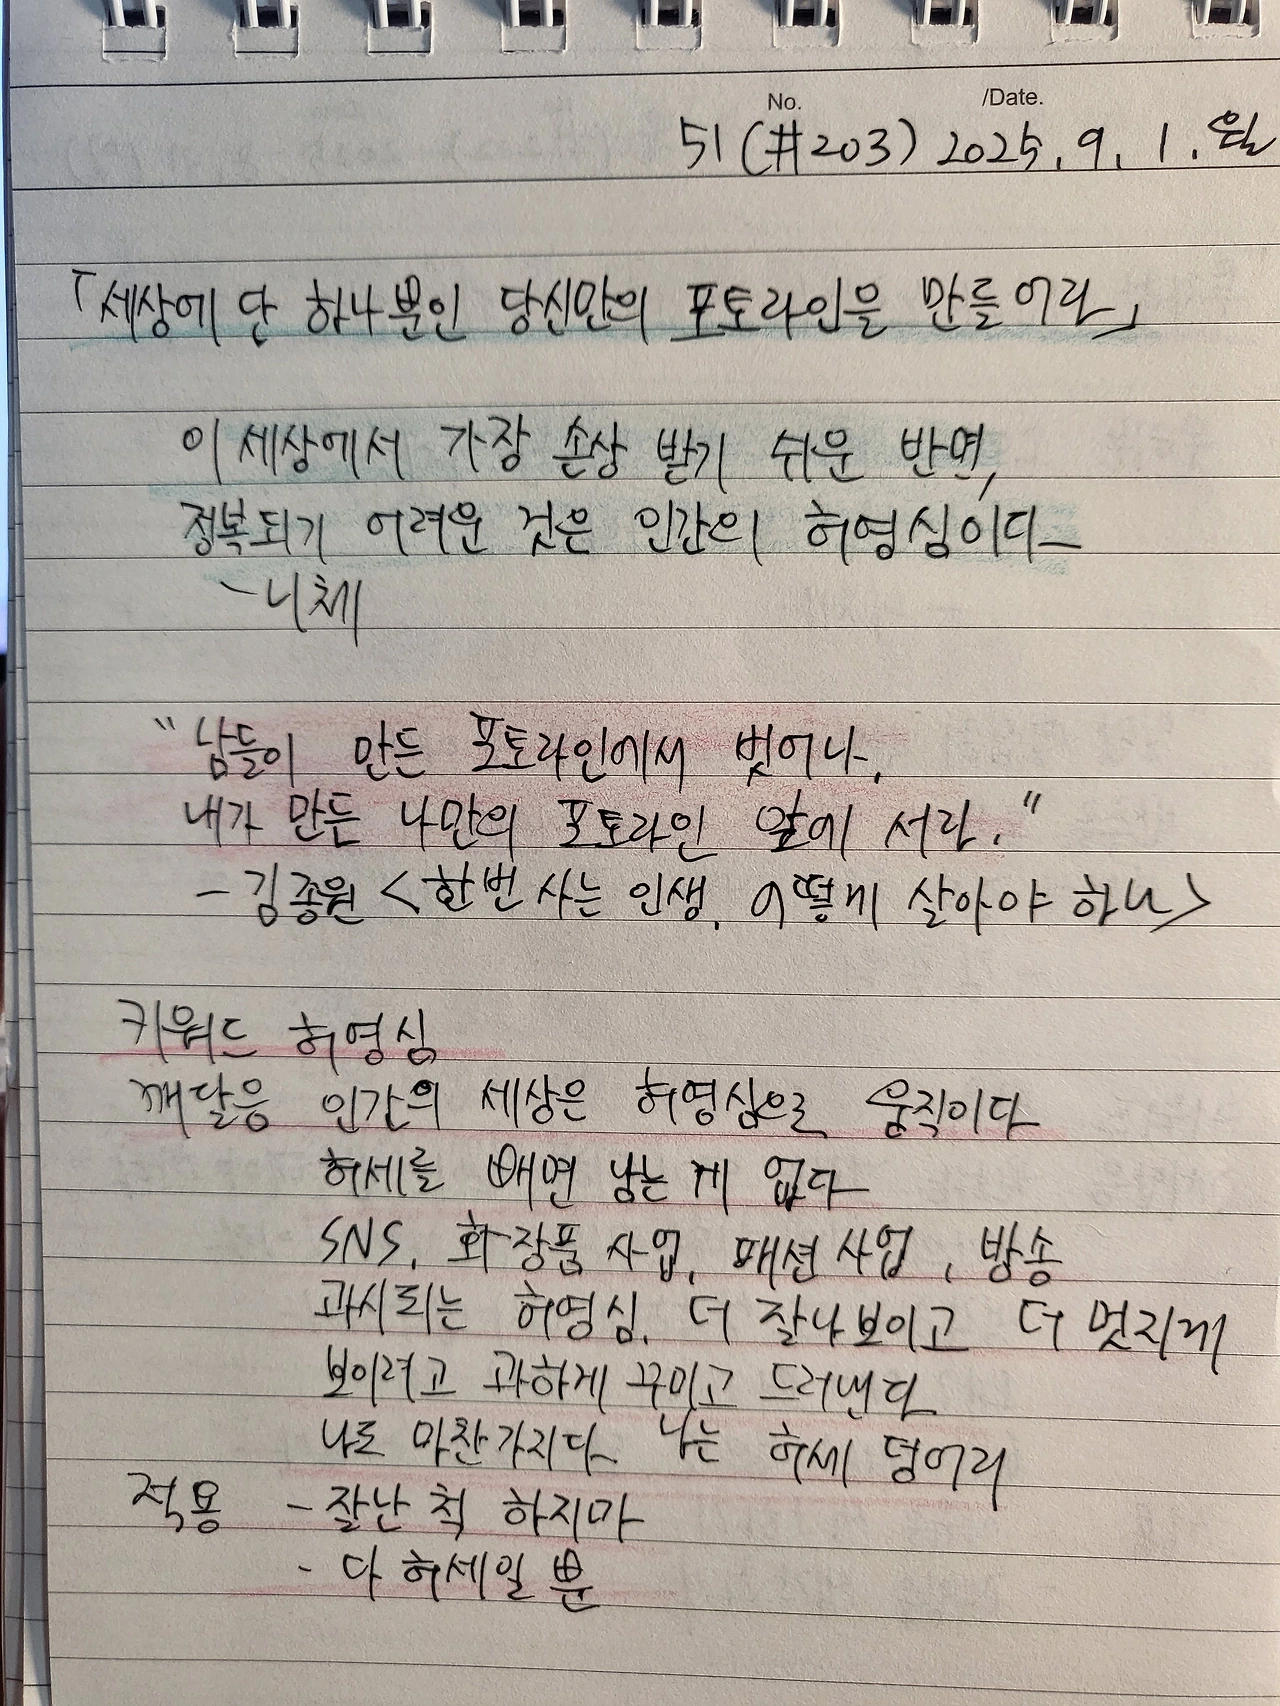 No. /Date.
51 (#203) 2025. 9. 1. 월
「세상에 단 하나뿐인 당신만의 포토라인을 만들어라」
이 세상에서 가장 손상 받기 쉬운 반면,
정복되기 어려운 것은 인간의 허영심이다
- 니체
"남들이 만든 포토라인에서 벗어나,
내가 만든 나만의 포토라인 앞에 서라."
- 김종원 <한번 사는 인생, 어떻게 살아야 하나>
키워드 허영심
깨달음 인간의 세상은 허영심으로 움직이다
허세를 빼면 남는 게 없다
SNS, 화장품 사업, 패션사업, 방송
과시되는 허영심. 더 잘나보이고 더 멋지게
보이려고 과하게 꾸미고 드러낸다
나도 마찬가지다 나는 허세 덩어리
적용 - 잘난 척 하지마
- 다 허세일 뿐